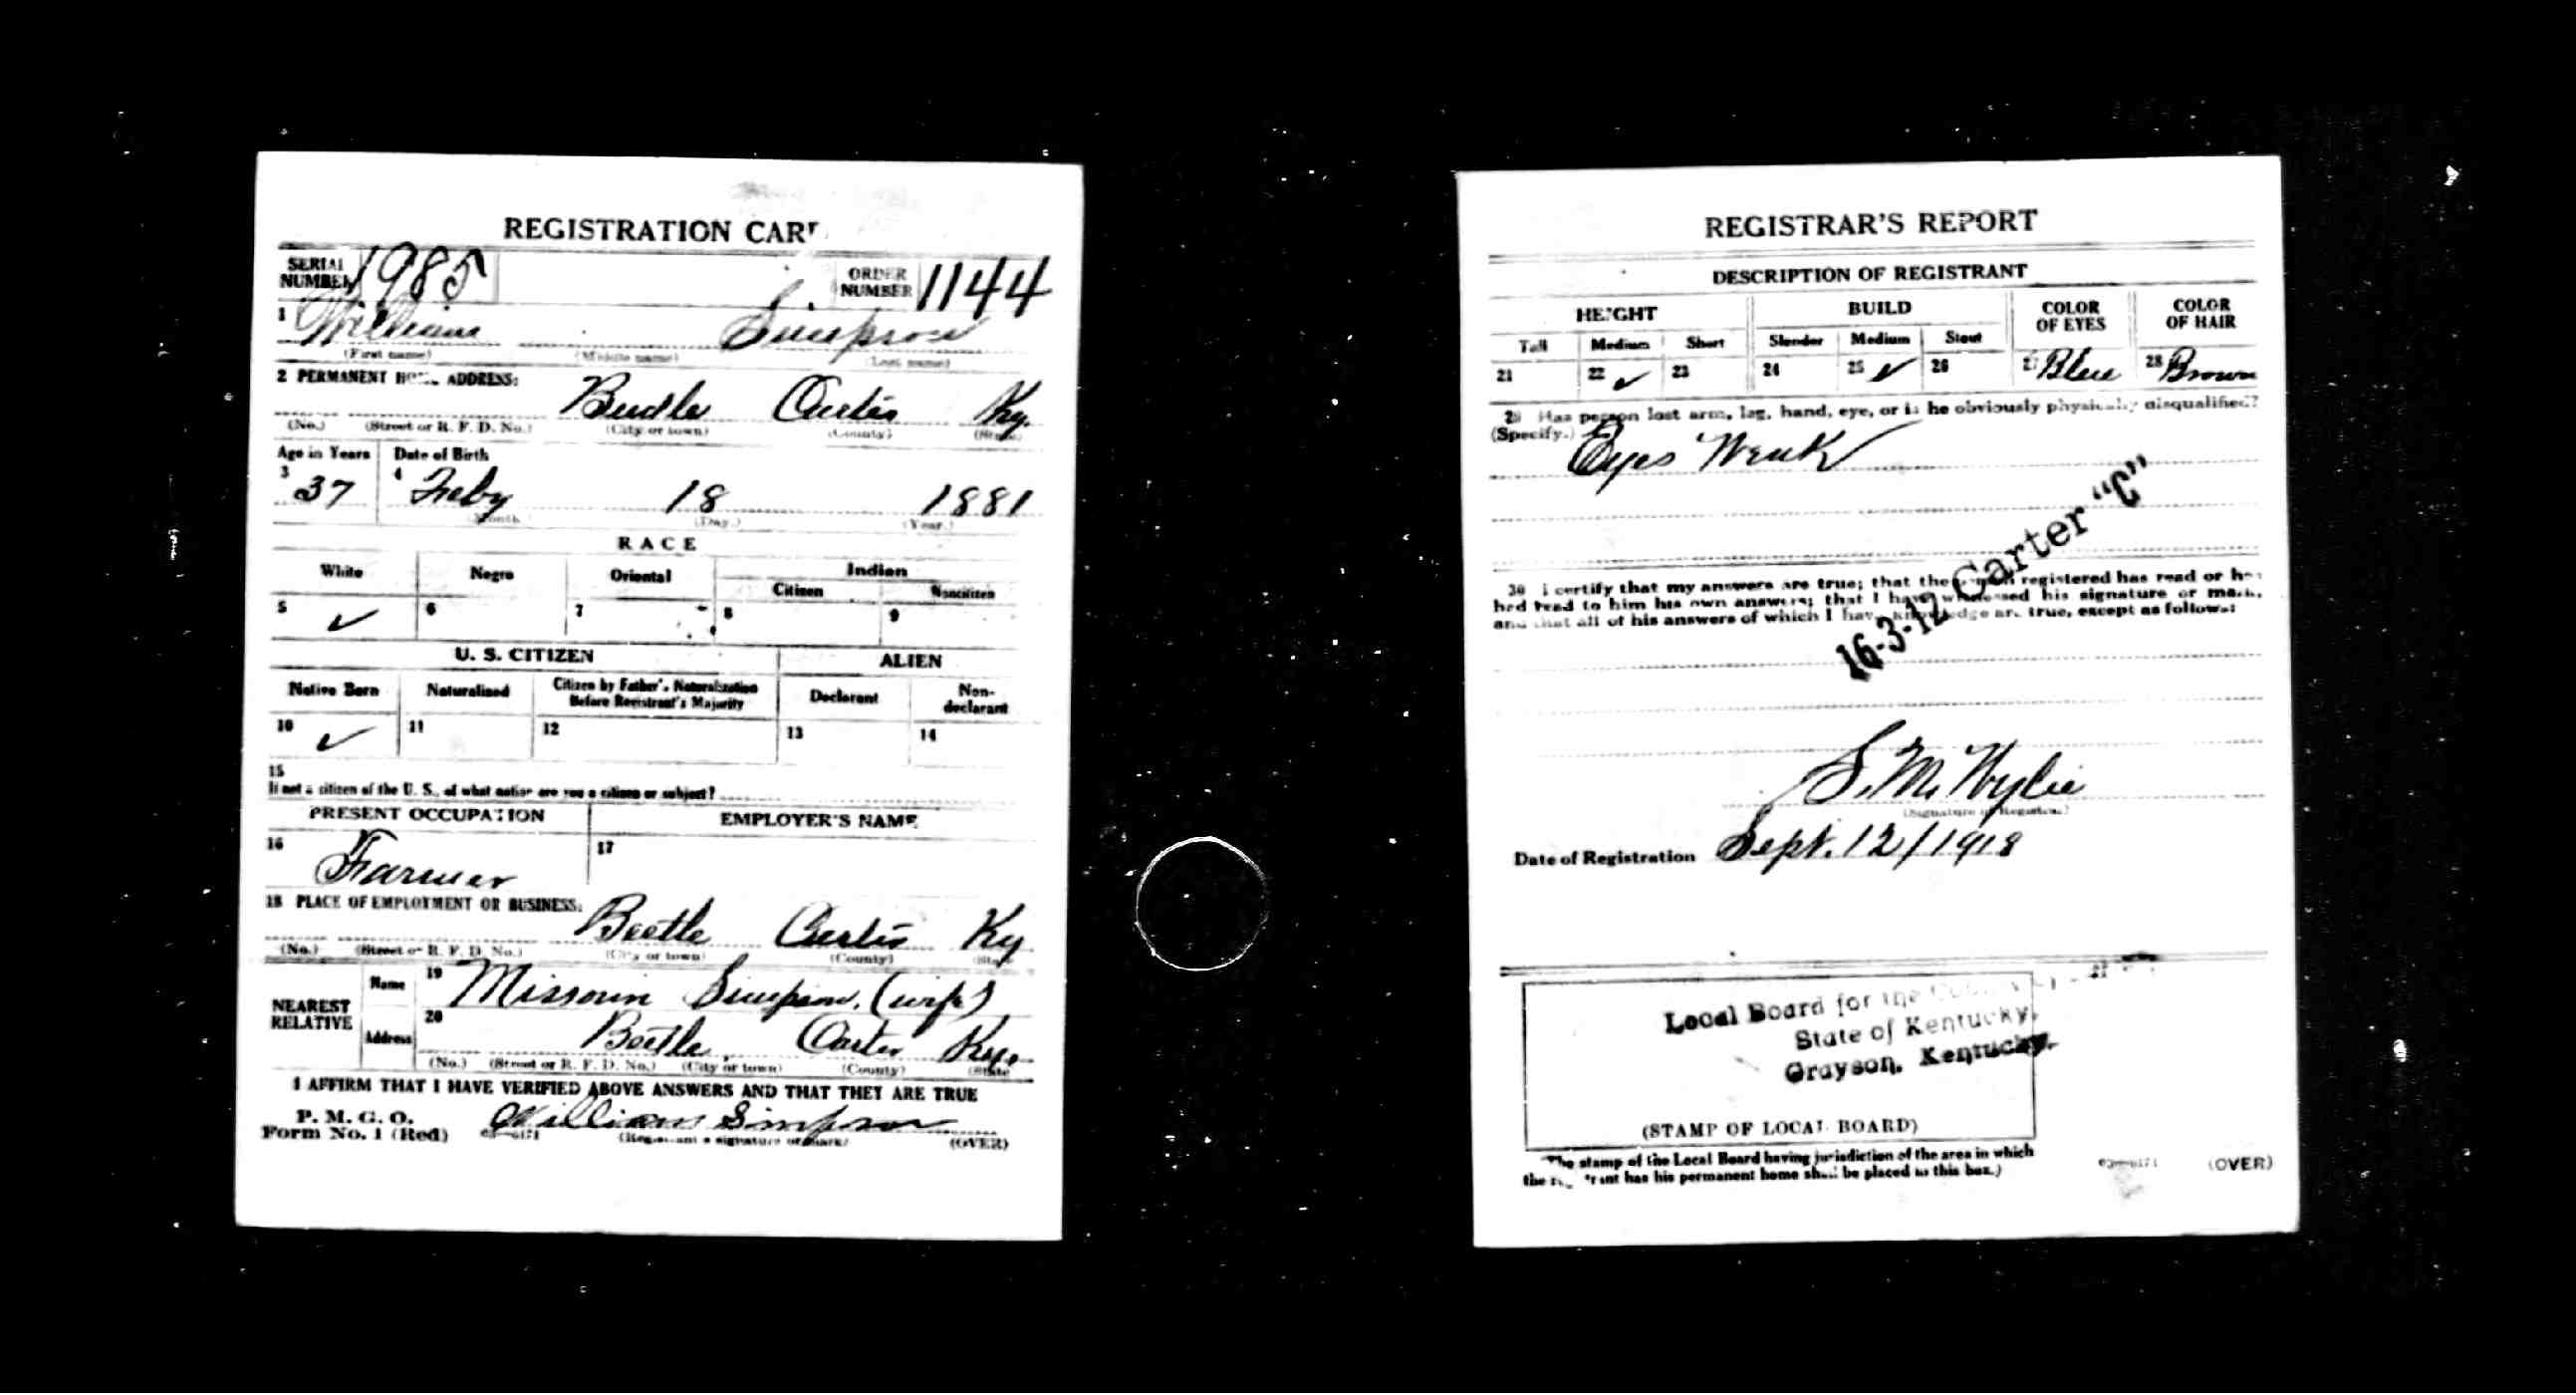 REGISTRATION CAR
SERIAL NUMBER 1985 ORDER NUMBER 1144
1 William Simpson
(First name) (Middle name) (Last name)
2 PERMANENT ADDRESS: Beetle Carter Ky.
(No.) (Street or R. F. D. No.) (City or town) (County) (State)
Age in Years Date of Birth
3 37 4 Feby 18 1881
(Month) (Day.) (Year.)
RACE
White Negro Oriental Indian
Citizen Noncitizen
5 ✓ 6 7 8 9
U. S. CITIZEN ALIEN
Native Born Naturalized Citizen by Father's Naturalization Before Registrant's Majority Declarant Non-declarant
10 ✓ 11 12 13 14
15
If not a citizen of the U. S., of what nation are you a citizen or subject?
PRESENT OCCUPATION EMPLOYER'S NAME
16 Farmer 17
18 PLACE OF EMPLOYMENT OR BUSINESS: Beetle Carter Ky
(No.) (Street or R. F. D. No.) (City or town) (County) (State)
NEAREST RELATIVE Name 19 Missouri Simpson, (wife)
Address 20 Beetle, Carter Ky.
(No.) (Street or R. F. D. No.) (City or town) (County) (State
I AFFIRM THAT I HAVE VERIFIED ABOVE ANSWERS AND THAT THEY ARE TRUE
P. M. G. O.
Form No. 1 (Red) William Simpson
(Registrant's signature or mark) (OVER)
REGISTRAR'S REPORT
DESCRIPTION OF REGISTRANT
HEIGHT BUILD COLOR OF EYES COLOR OF HAIR
Tall Medium Short Slender Medium Stout
21 22 ✓ 23 24 25 ✓ 26 27 Blue 28 Brown
29 Has person lost arm, leg, hand, eye, or is he obviously physically disqualified?
(Specify.) Eyes Weak
16-3-12 Carter "C"
30 I certify that my answers are true; that the person registered has read or has
had read to him his own answers; that I have witnessed his signature or mark,
and that all of his answers of which I have knowledge are true, except as follows:
S. M. Wylie
(Signature of Registrar.)
Date of Registration Sept. 12/1918
Local Board for the County
State of Kentucky,
Grayson, Kentucky.
(STAMP OF LOCAL BOARD)
The stamp of the Local Board having jurisdiction of the area in which
the registrant has his permanent home shall be placed in this box.)
(OVER)